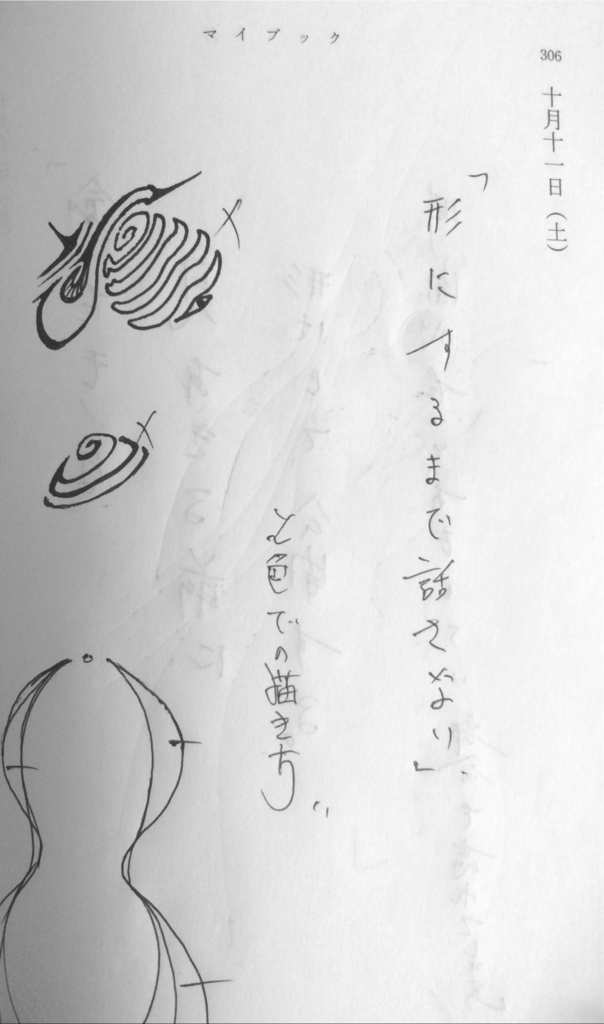 マイブック
306
十月十一日（土）
「形にするまで話さない」
色での描き方